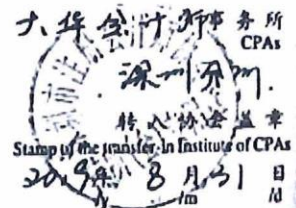 大华会计师事务所
CPAs
深圳分所
转入协会盖章
Stamp of the transfer-In Institute of CPAs
2019年 8月31日
/y /m /d